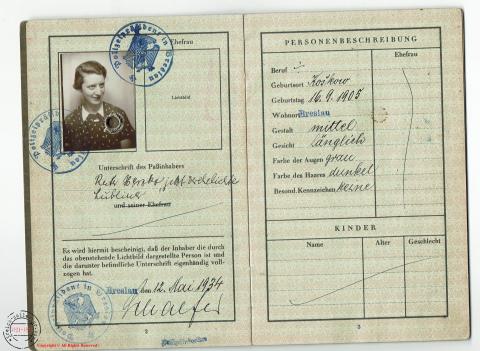 Polizeipräsident in Breslau
Ehefrau
Lichtbild
Polizeipräsident in Breslau
Unterschrift des Paßinhabers
Lublin
und seiner Ehefrau
Es wird hiermit bescheinigt, daß der Inhaber die durch
das obenstehende Lichtbild dargestellte Person ist und
die darunter befindliche Unterschrift eigenhändig voll-
zogen hat.
Breslau, den 12. Mai 1934
Polizeipräsident in Breslau
2
PERSONENBESCHREIBUNG
Ehefrau
Beruf
Geburtsort
Geburtstag 16.9.1905
Wohnort Breslau
Gestalt mittel
Gesicht länglich
Farbe der Augen grau
Farbe des Haares dunkel
Besond. Kennzeichen keine
KINDER
Name Alter Geschlecht
3
Copyright © All Rights Reserved